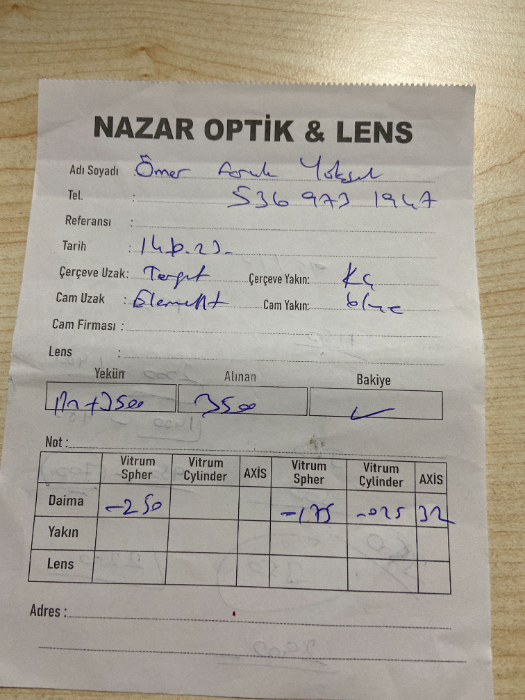 NAZAR OPTİK & LENS
Adı Soyadı Ömer Faruk Yüksel
Tel. : 536 973 1947
Referansı :
Tarih :
Çerçeve Uzak: Target Çerçeve Yakın:
Cam Uzak : Element Cam Yakın: blue
Cam Firması :
Lens :
Yekün Alınan Bakiye
3500 ✓
Not :
Vitrum Spher Vitrum Cylinder AXİS Vitrum Spher Vitrum Cylinder AXİS
Daima -250 -175 -025 32
Yakın
Lens
Adres :